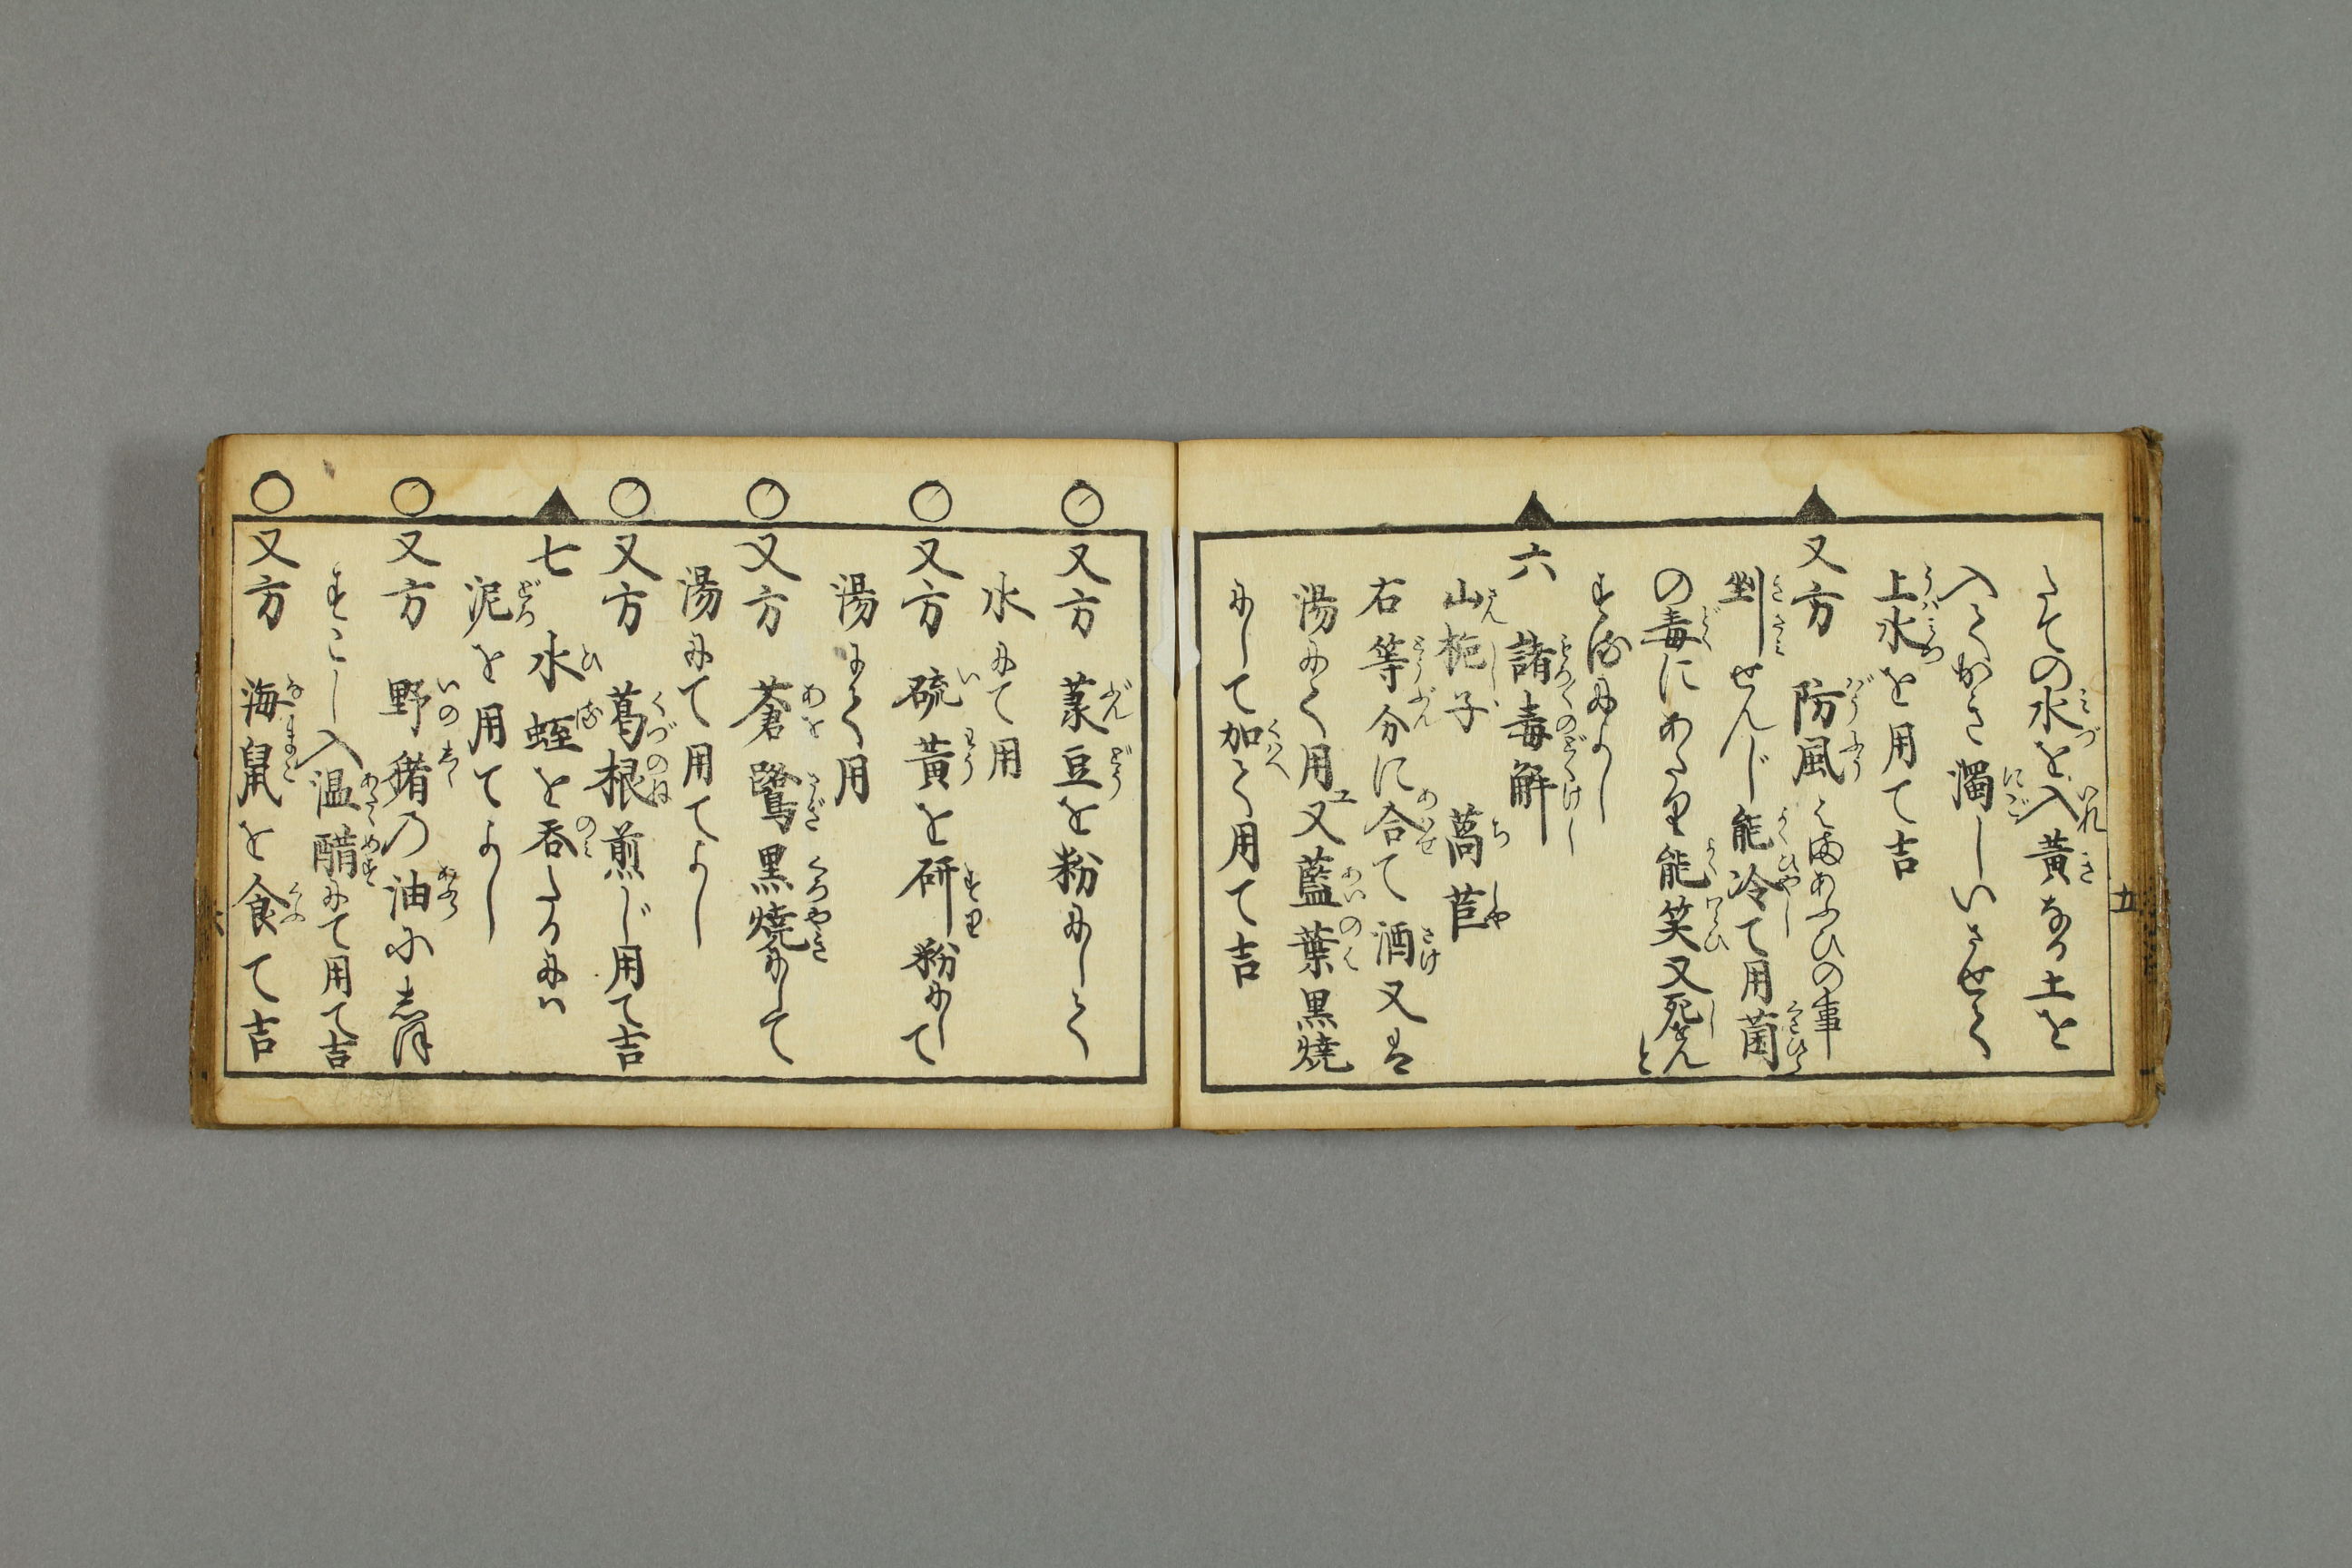 たての水を入黄なる土を
入てかき濁しいさせて
上水を用て吉
又方 防風 はまあふひの事
剉せんじ能冷て用菌
の毒にあたり能笑又死せんと
するによし
六 諸毒解
山梔子 萵苣
右等分に合て酒又は
湯にて用又藍葉黒焼
にして加て用て吉
又方 菉豆を粉にして
水にて用
又方 硫黄を研粉にして
湯にて用
又方 蒼鷺黒焼にして
湯にて用てよし
又方 葛根煎じ用て吉
七 水蛭を呑たるにハ
泥を用てよし
又方 野猪乃油に
すこし入温醋にて用て吉
又方 海鼠を食て吉
五